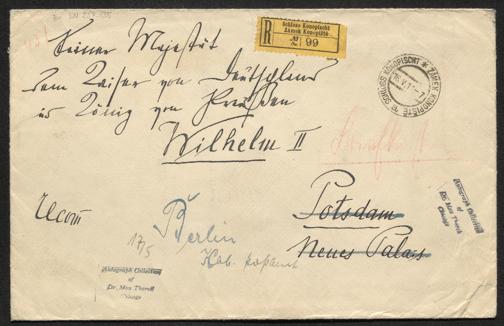 R
Schloss Konopischt
Zámek Konopiště
№ 99
Seiner Majestät
dem Kaiser von Deutschland
u König von Preußen
Wilhelm II
SCHLOSS KONOPISCHT * ZÁMEK KONOPIŠTĚ
Potsdam
Neues Palais
Berlin
17/5
Autograph Collection
of
Dr. Max Thorek
Chicago
Autograph Collection
of
Dr. Max Thorek
Chicago